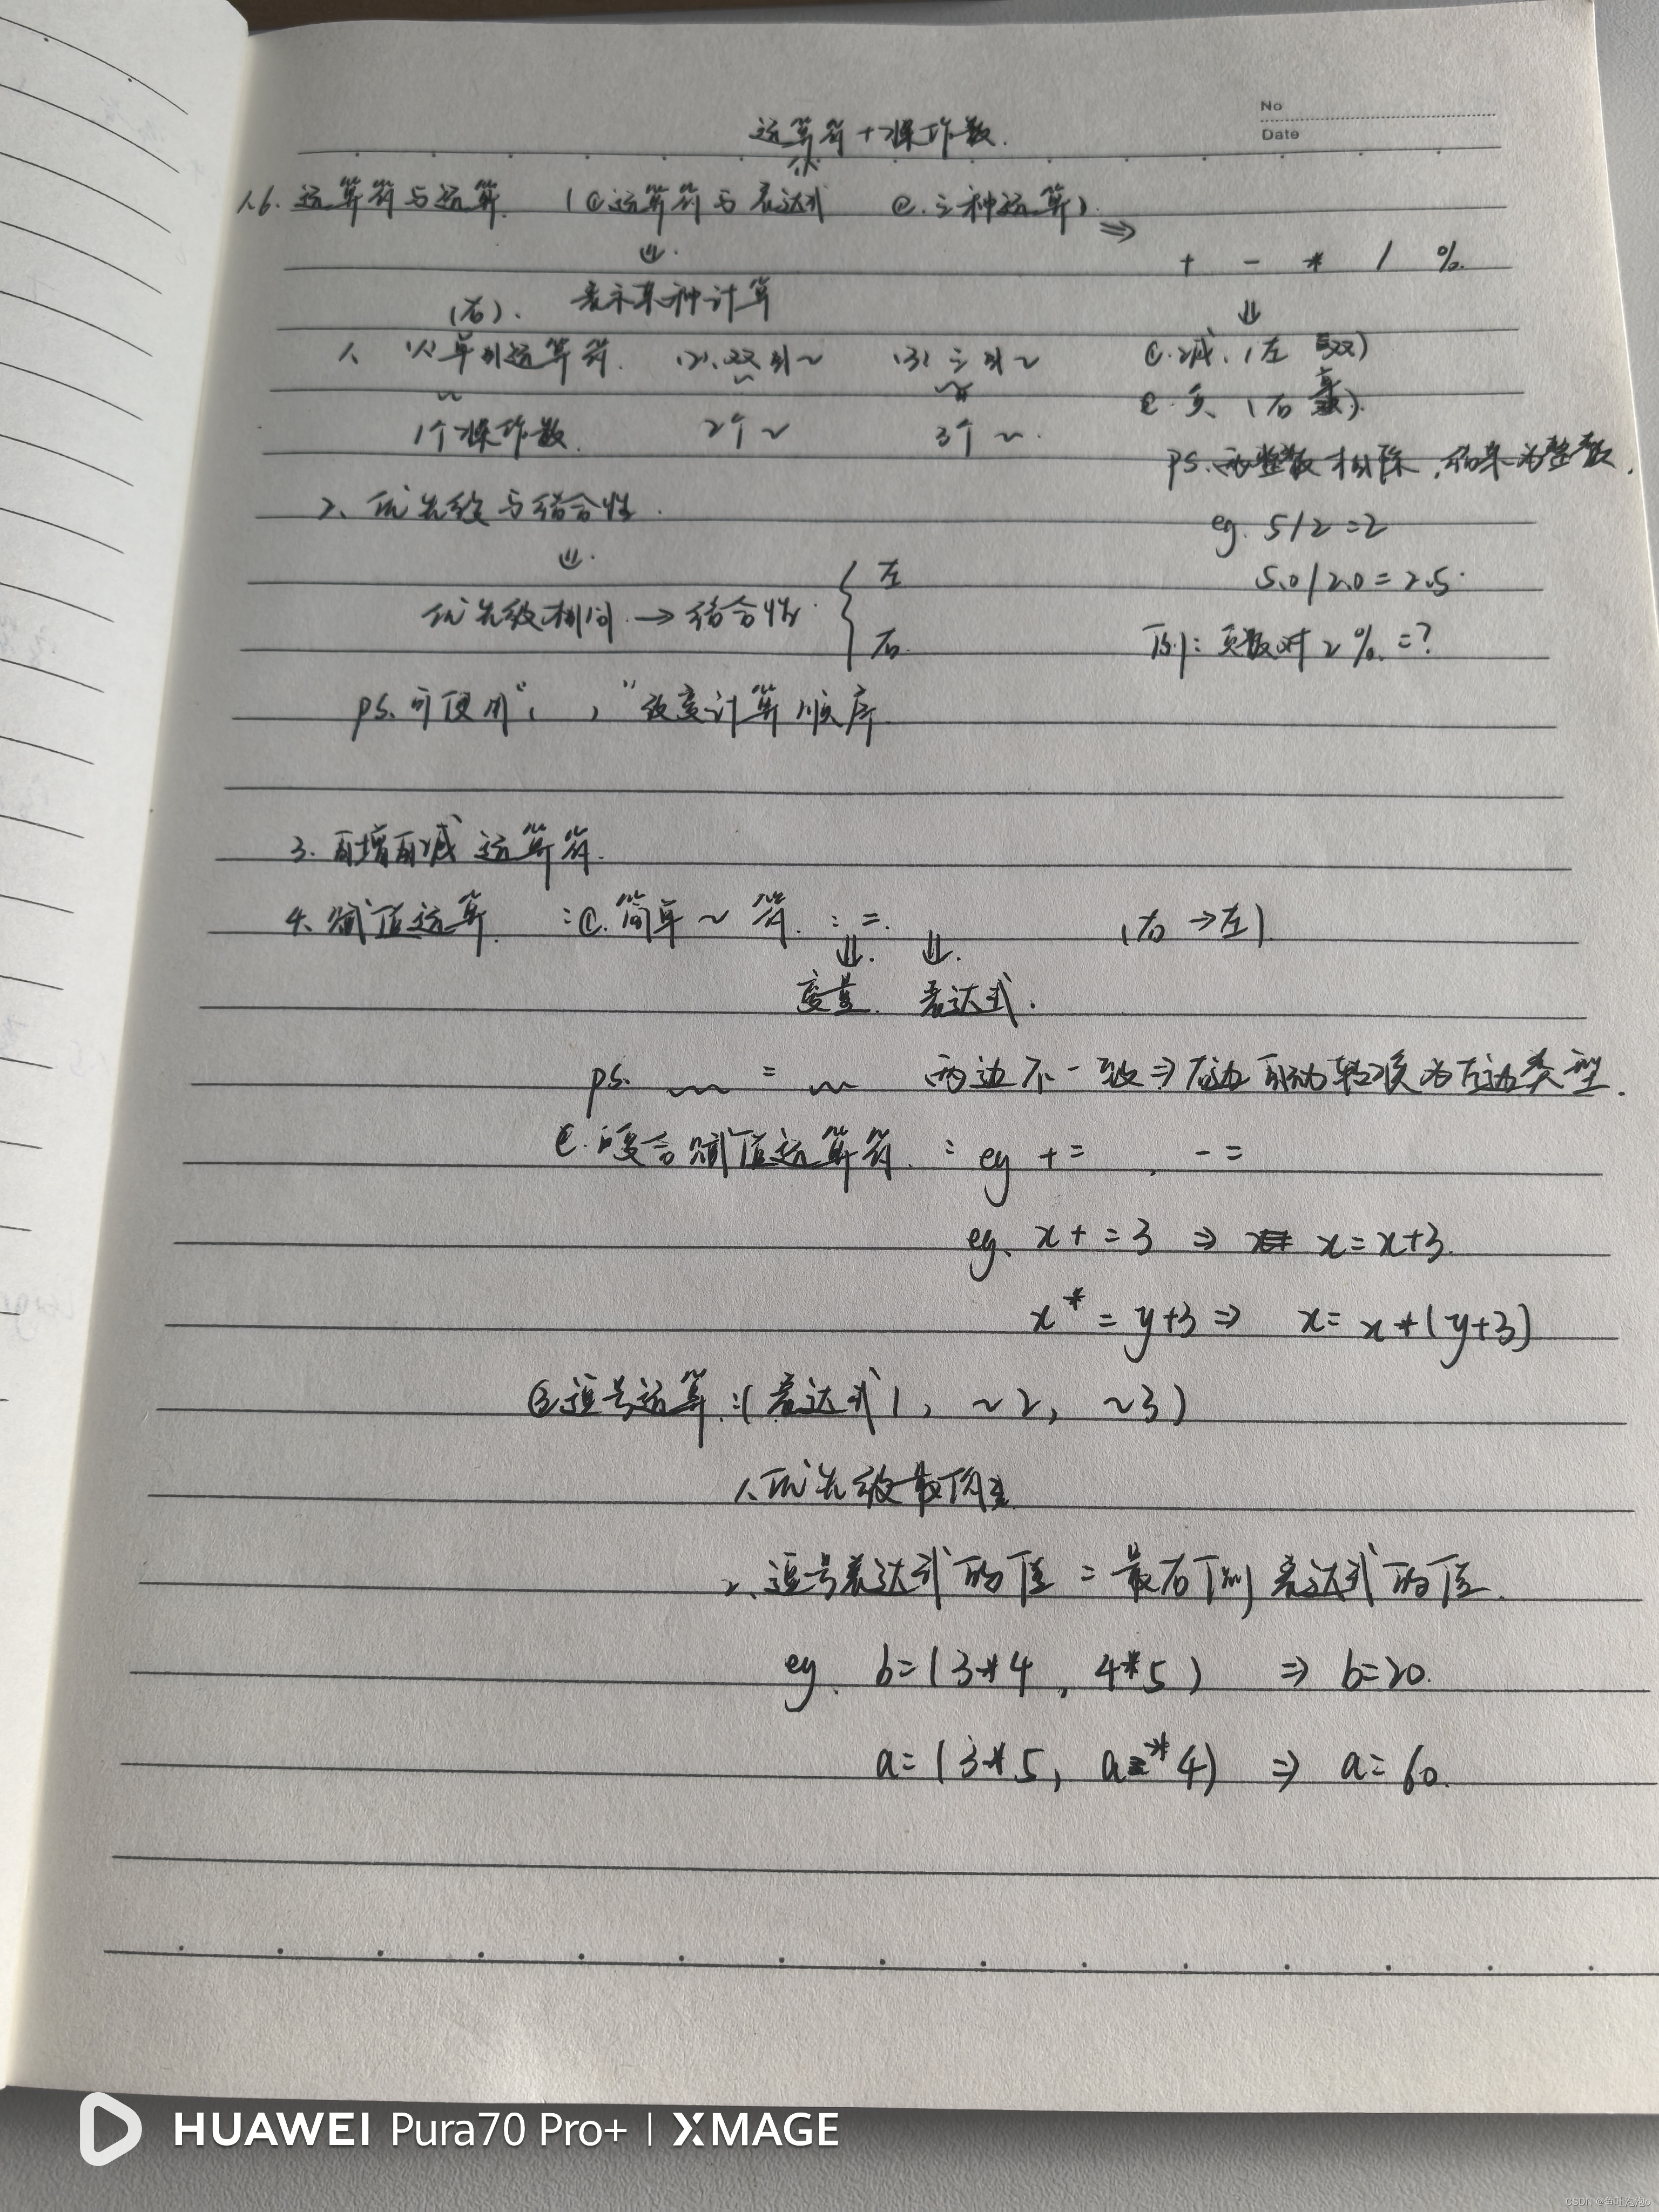 No
Date
运算符+操作数.
1.6. 运算符与运算. (①运算符与表达式 ②.三种运算).
⇒ + - * / %.
(右). 表示某种计算
1、(1)单目运算符. (2).双目~ (3)三目~
1个操作数. 2个~ 3个~.
①.减.(左 双)
②.负(右 单).
ps.两整数相除,结果为整数.
eg. 5/2=2
5.0/2.0=2.5.
例:负数对2%.=?
2、优先级与结合性.
优先级相同.→结合性. { 左 右.
ps.可使用“( )”改变计算顺序.
3.自增自减运算符.
4、赋值运算. :①.简单~符. : =. (右→左).
变量. 表达式.
ps. ~ = ~ 两边不一致⇒右边自动转换为左边类型.
②.复合赋值运算符. : eg += , -=
eg. x+=3 ⇒ x=x+3.
x*=y+3 ⇒ x=x*(y+3)
③逗号运算:(表达式1, ~2, ~3)
1、优先级最低
2、逗号表达式的值=最右侧表达式的值.
eg. b=(3*4, 4*5) ⇒ b=20.
a=(3*5, a*4) ⇒ a=60.
HUAWEI Pura70 Pro+ | XMAGE